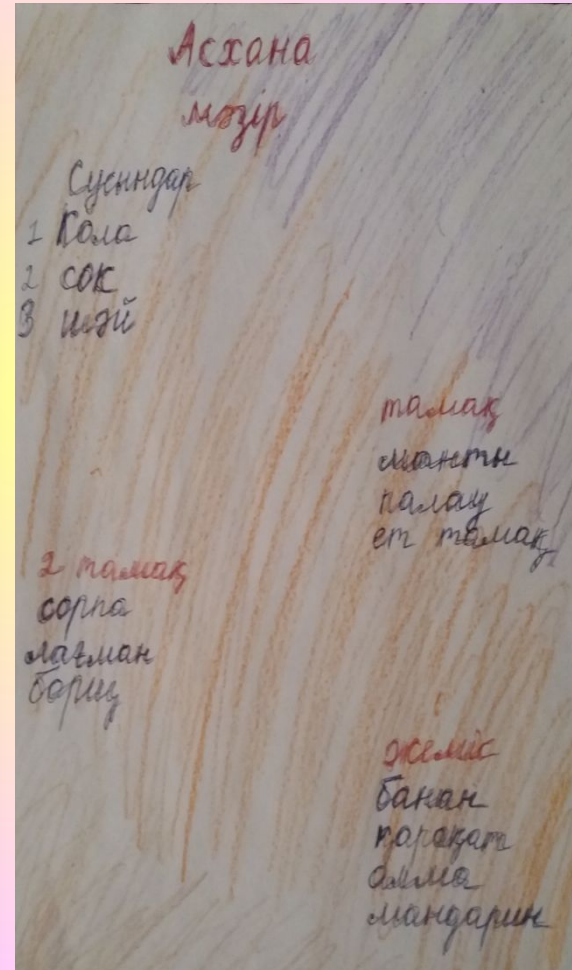 Асхана
мәзір
Сусындар
1 Кола
2 сок
3 шәй
тамақ
манты
палау
ет тамақ
2 тамақ
сорпа
лағман
борщ
жеміс
банан
қарақат
алма
мандарин